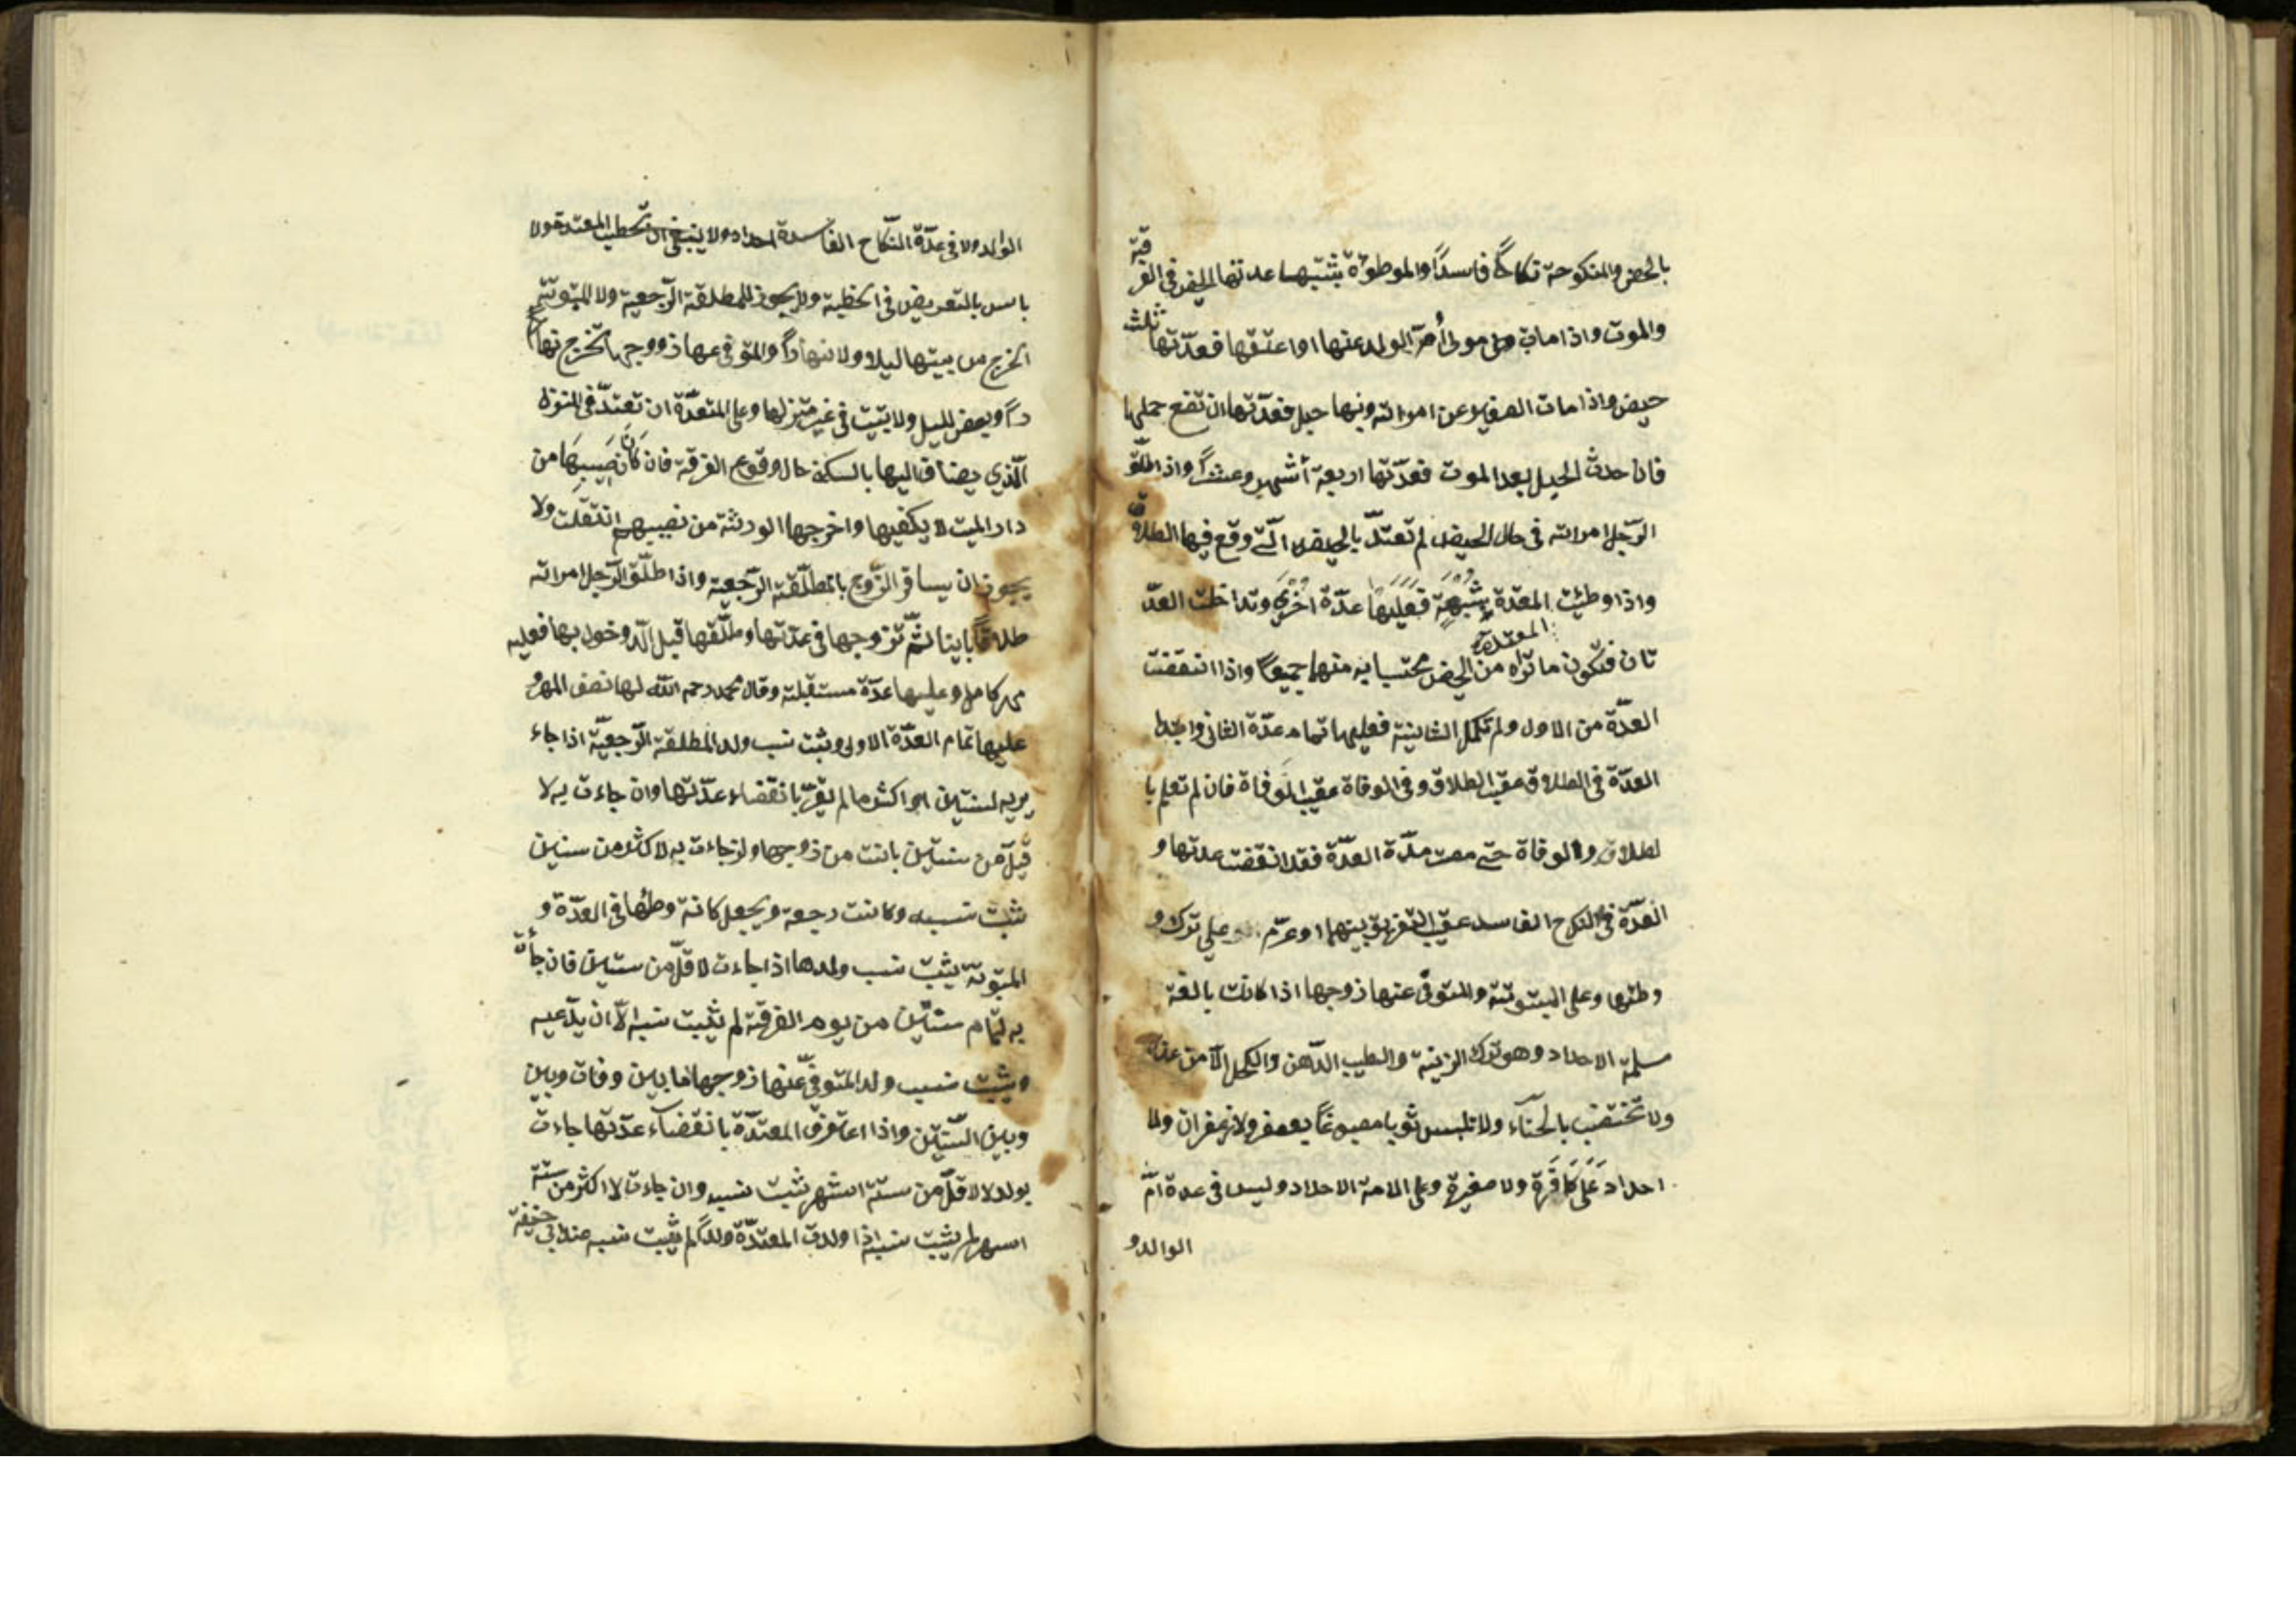 بالحيض والمنكوحة نكاحًا فاسدًا والموطوءة بشبهة عدتها الحيض في الفرقة
والموت واذا مات مولى أم الولد عنها او اعتقها فعدّتها ثلث
حيض واذا مات الصغير عن امراته وبها حبل فعدّتها ان تضع حملها
فان حدث الحبل بعد الموت فعدّتها اربعة أشهر وعشرًا واذا طلّق
الرّجل امراته في حال الحيض لم تعتدّ بالحيض الّتي وقع فيها الطلاق
واذا وطئت المعتدة بِشُبْهَةٍ فَعَلَيْهَا عدّة اخرى وتداخلت العدّ
تان فتكون ما تراه المعتدة من الحيض محتسبا به منهما جميعًا واذا انقضت
العدّة من الاول ولم تكمل الثانية فعليها تمام عدّة الثاني وابتدا
العدّة في الطلاق عقيب الطلاق وفي الوفاة عقيب الوفاة فان لم تعلم با
لطلاق والوفاة حتى مضت مدّة العدّة فقد انقضت عدتها و
العدّة في النكاح الفاسد عقيب التفريق بينهما او عزم على ترك و
وطئها وعلى المبتوتة والمتوفّى عنها زوجها اذا كانت بالغة
مسلمة الاحداد وهو ترك الزينة والطيب الدّهن والكحل الّا من عذر
ولا تختضب بالحنّاء ولا تلبس ثوبا مصبوغًا بعصفر ولا زعفران ولا
احداد عَلَى كَافَرة ولا صغيرة وعلى الامة الاحداد وليس في عدة امّ
الوالد و
الوالد ولا في عدّة النّكاح الفاسدة احداد ولا ينبغي ان تخطب المعتدة ولا
باس بالتعريض في الخطبة ولا يجوز للمطلقة الرّجعية ولا المبتوتة
الخرج من بيتها ليلا ولا نهارًا والمتوفى عنها زووجها تخرج نها
رًا وبعض لليل ولا تبيت في غير منزلها وعلى المتعدّة ان تعتدّ في المنزل
الّذي يضاف اليها بالسكنى حال وقوع الفرقة فان كَانَ نَصِيبِهَا من
دار الميت لا يكفيها واخرجها الورثة من نصيبهم انتقلت ولا
يجوز ان يسافر الزّوج بالمطلّقة الرّجعية واذا طلّق الرّجل امراته
طلاقًا باينا ثمّ تزوجها في عدّتها وطلّقها قبل الدّخول بها فعليه
مهر كامل وعليها عدّة مستقبلة وقال محمد رحمه الله لها نصف المهر و
عليها تمام العدّة الاولى ويثبت نسب ولد المطلقة الرّجعيّة اذا جاء
به لسنتين او اكثر ما لم تقرّ بانقضاء عدّتها وان جاءت به لا
قلّ من سنتين بانت من زوجها وان جاءت به لاكثر من سنتين
ثبت نسبه وكانت رجعة ويجعل كانه وطئها في العدّة و
المبتوتة يثبت نسب ولدها اذا جاءت لاقلّ من سنتين فان جأت
به لتمام سنتين من يوم الفرقة لم يثبت نسبه الّا ان يدّعيه
ويثبت نسب ولد المتوفّى عنها زوجها ما بين وفات وبين
وبين السّنتين واذا اعترفت المعتدّة بانقضاء عدّتها جاءت
بولد لاقلّ من ستّة اشهر ثبت نسبه وان جاءت لاكثر من ستة
اشهر لم يثبت نسبه اذا ولدت المعتدّة ولدًا لم يثبت نسبه عند ابي حنيفة